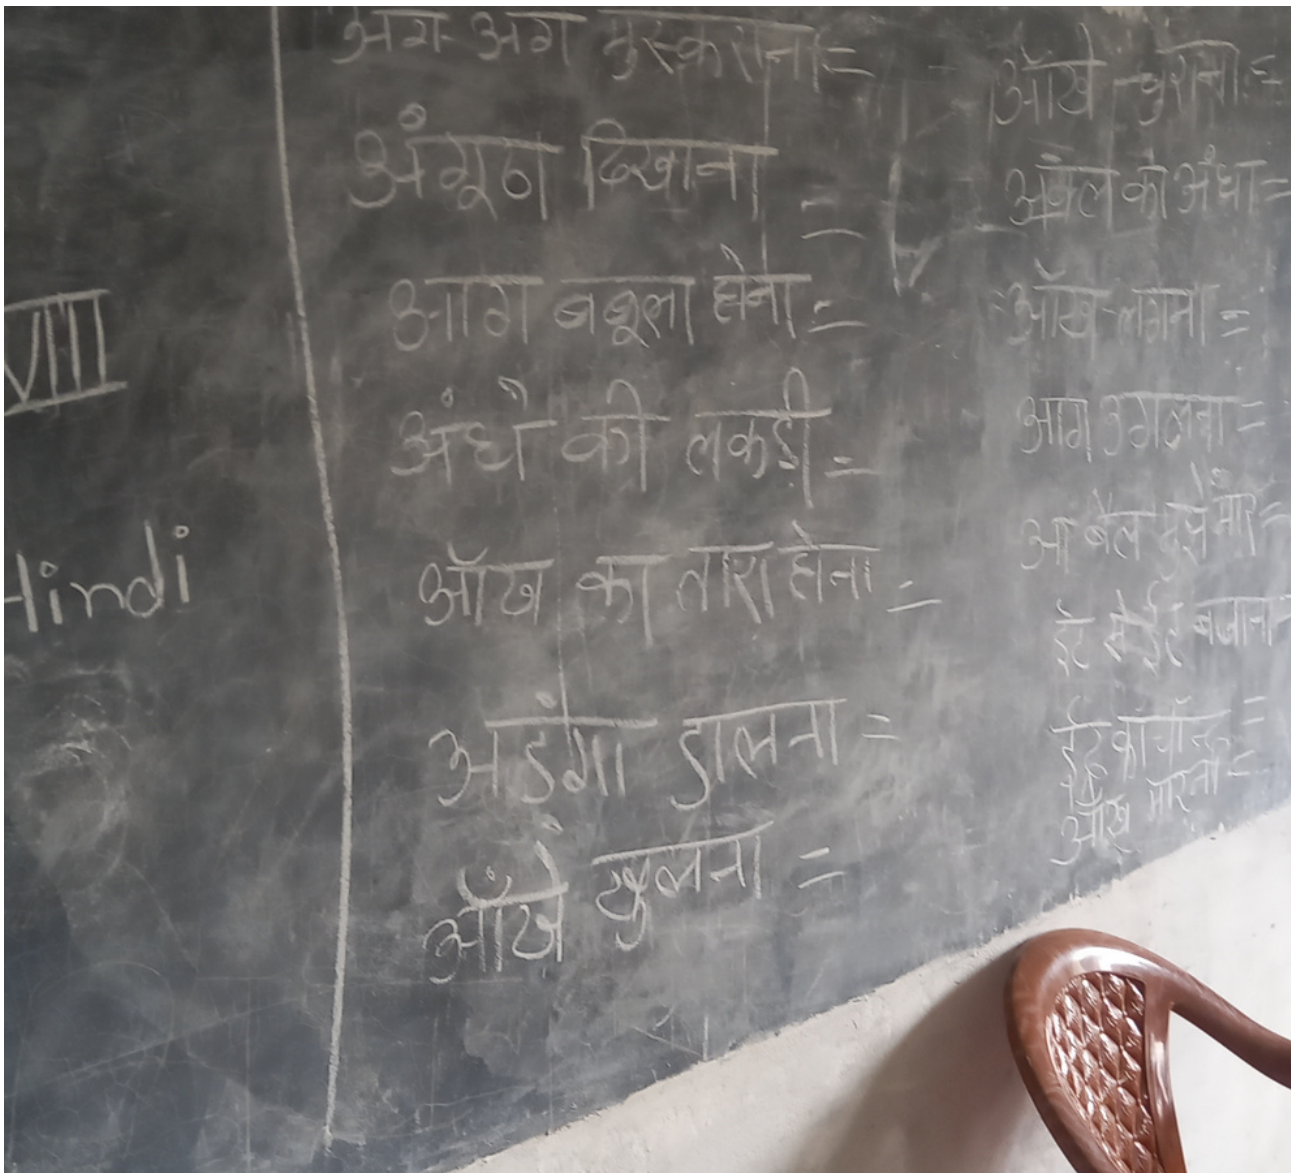 VIII
Hindi
अंग-अंग मुस्कराना =
अंगूठा दिखाना =
आग बबूला होना =
अंधे की लकड़ी =
आँख का तारा होना =
अडंगा डालना =
आँखे खुलना =
आँखे चुराना =
अक्ल का अंधा =
आँख लगना =
आग उगलना =
आ बैल मुझे मार =
ईट से ईट बजाना
ईद का चाँद =
आँख मारना =